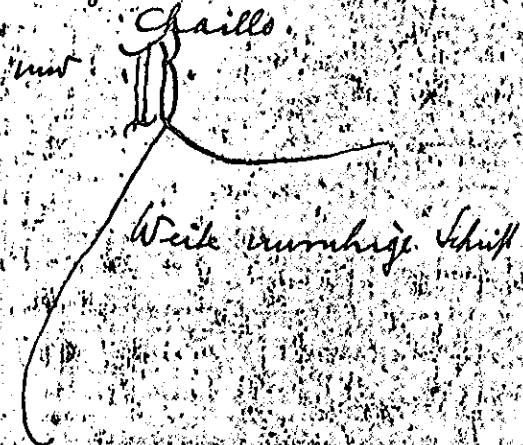 Chaillo
und B
Weite unruhige Schrift